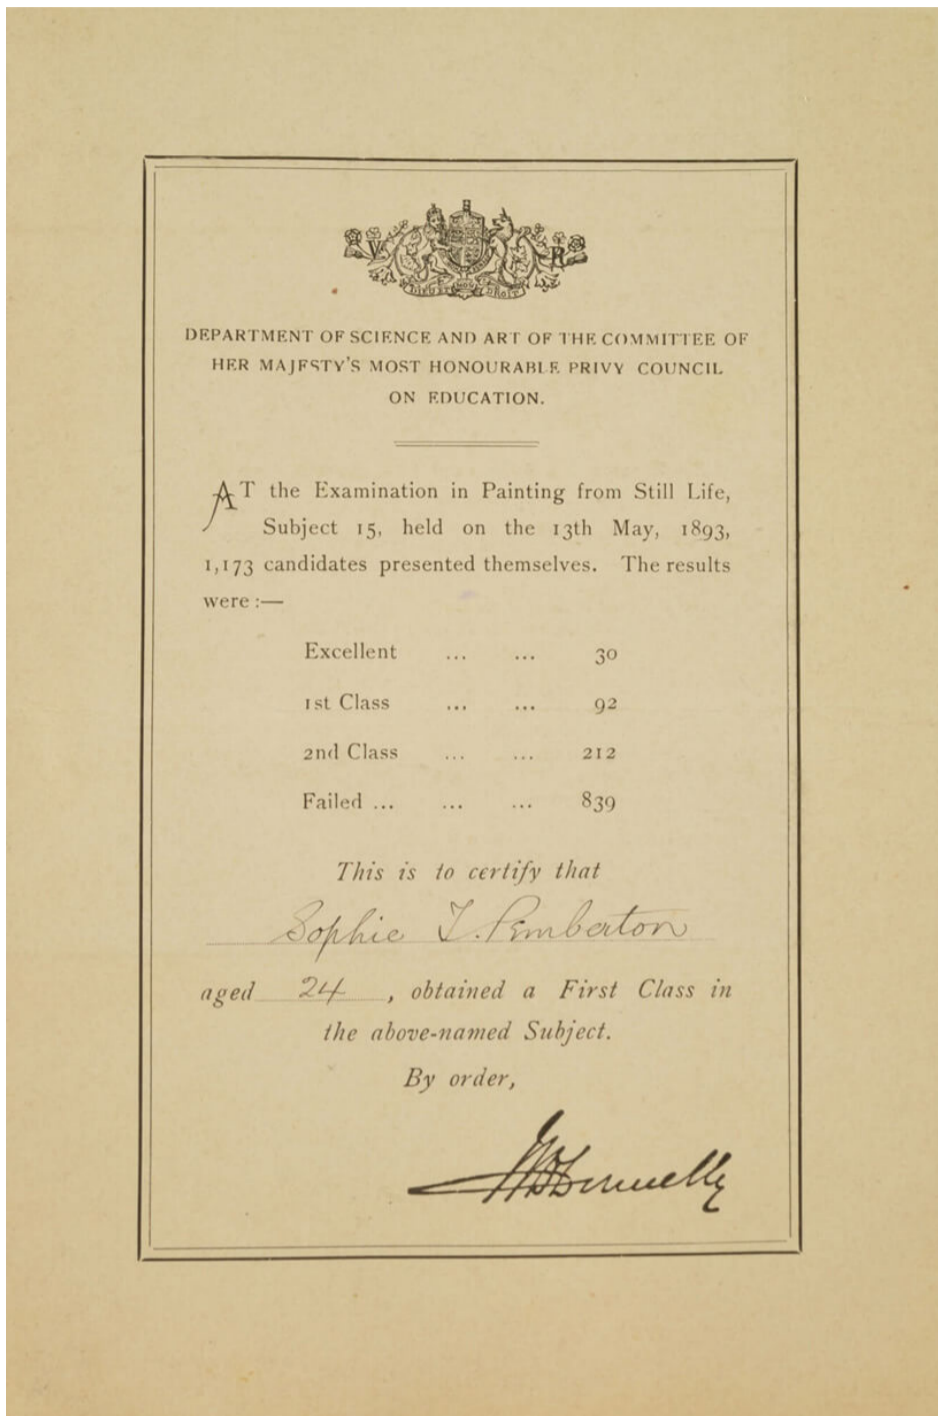 V R
DIEU ET MON DROIT
DEPARTMENT OF SCIENCE AND ART OF THE COMMITTEE OF
HER MAJESTY'S MOST HONOURABLE PRIVY COUNCIL
ON EDUCATION.
AT the Examination in Painting from Still Life,
Subject 15, held on the 13th May, 1893,
1,173 candidates presented themselves. The results
were :—
Excellent ... ... 30
1st Class ... ... 92
2nd Class ... ... 212
Failed ... ... ... 839
This is to certify that
Sophie T. Pemberton
aged 24, obtained a First Class in
the above-named Subject.
By order,